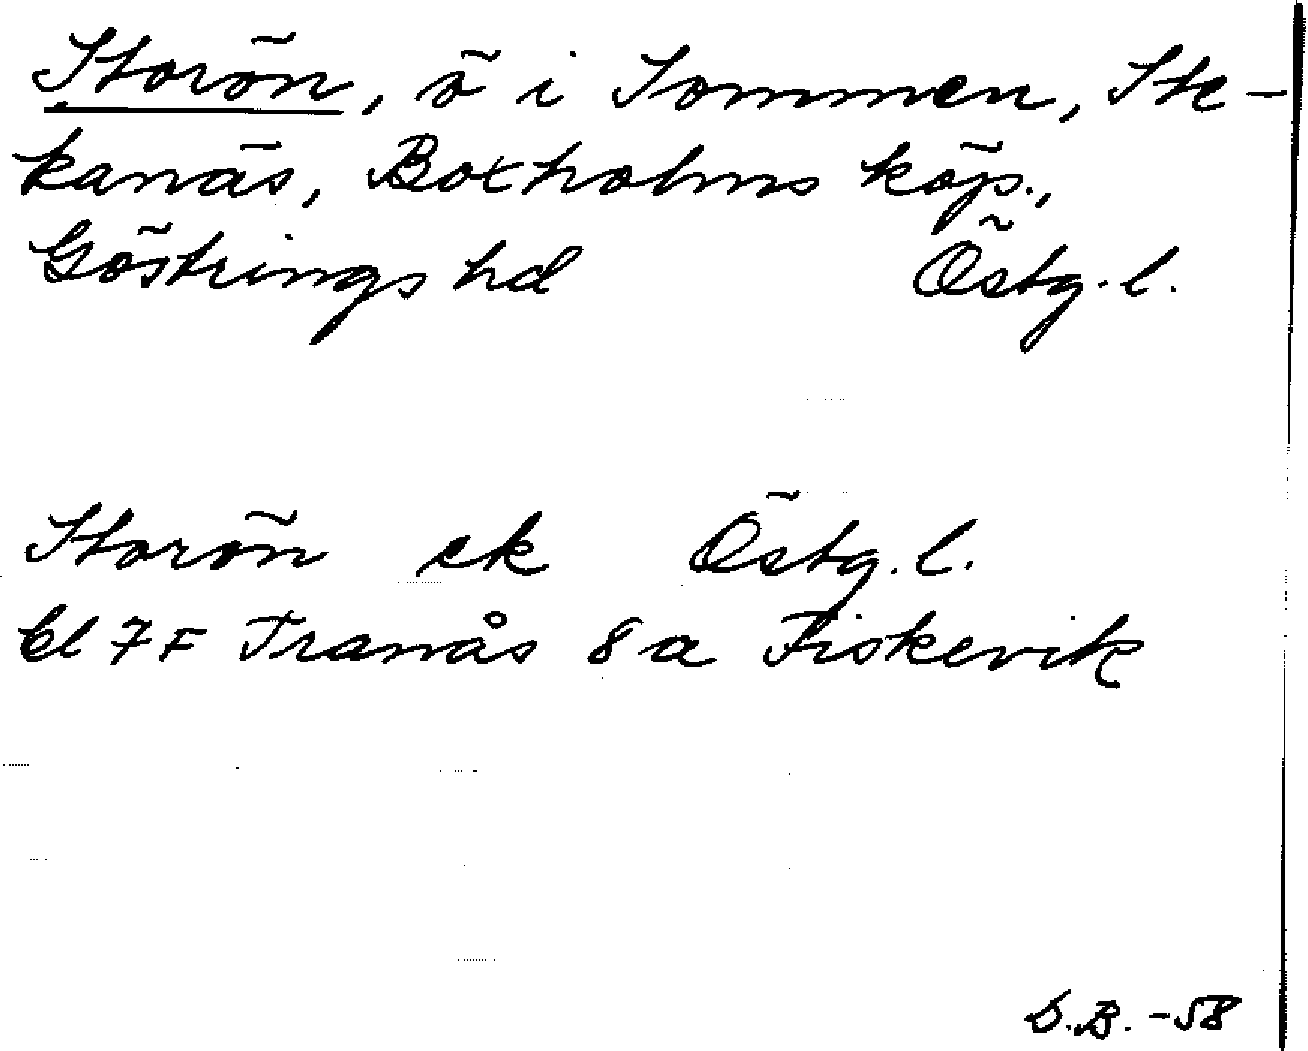 Storön, ö i Sommen, Ste-
kanäs, Boxholms köp.,
Göstrings hd Östg. l.
Storön ek Östg. l.
bl 7F Tranås 8a Fiskevik
D.B. -58